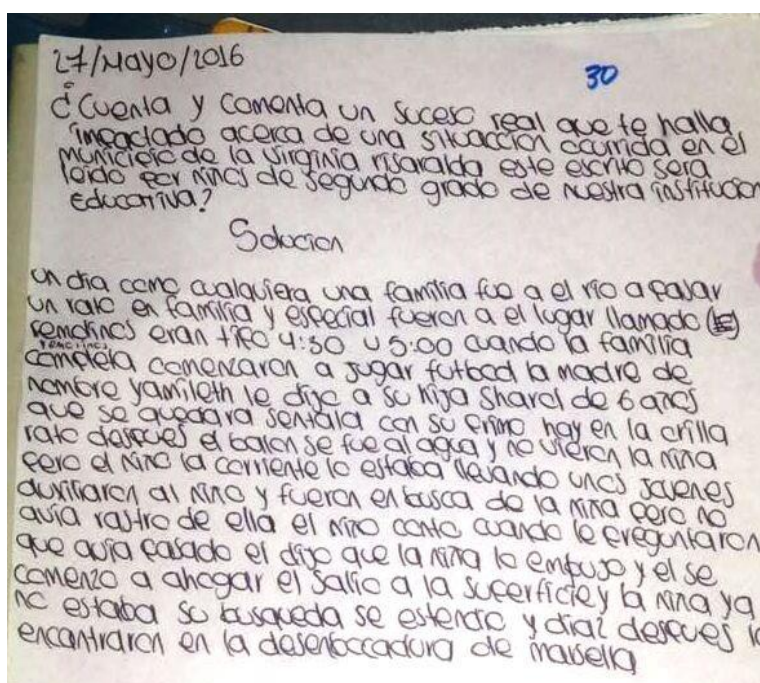 27/Mayo/2016
30
¿Cuenta y comenta un suceso real que te halla
impactado acerca de una situacción ocurrida en el
municipio de la virginia risaralda este escrito sera
leido por niños de segundo grado de nuestra institucion
Educativa?
Solucion
un dia como cualquiera una familia fue a el rio a pasar
un rato en familia y especial fueron a el lugar llamado
remolinos eran tipo 4:30 u 5:00 cuando la familia
remolinos
completa comenzaron a jugar futbool la madre de
nombre yamileth le dijo a su hija Sharol de 6 años
que se quedara sentala con su primo hay en la orilla
rato despues el balon se fue al agua y no vieron la niña
pero el niño la corriente lo estaba llevando unos jovenes
auxiliaron al niño y fueron en busca de la niña pero no
avia rastro de ella el niño conto cuando le preguntaron
que avia pasado el dijo que la niña lo empujo y el se
comenzo a ahogar el salio a la superficie y la niña ya
no estaba su busqueda se estendio y diaz despues
encontraron en la desenboccadura de marsella